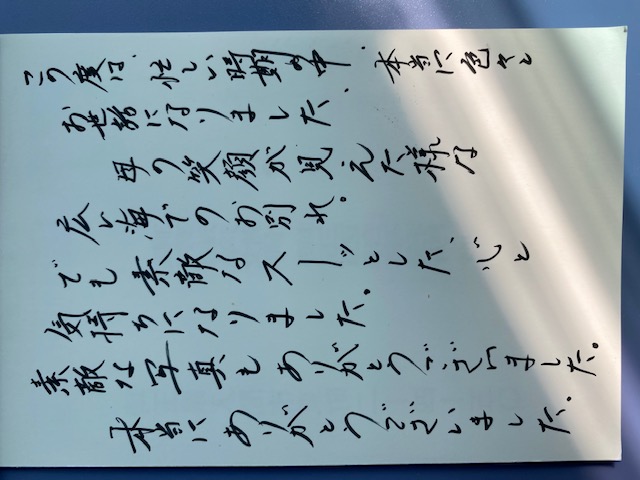 この度は、忙しい時期の中、本当に色々と
お世話になりました、
母の笑顔が見えた様な
広い海でのお別れ。
でも素敵なスーッとした、心と
気持ちになりました。
素敵な写真もありがとうございました。
本当にありがとうございました。